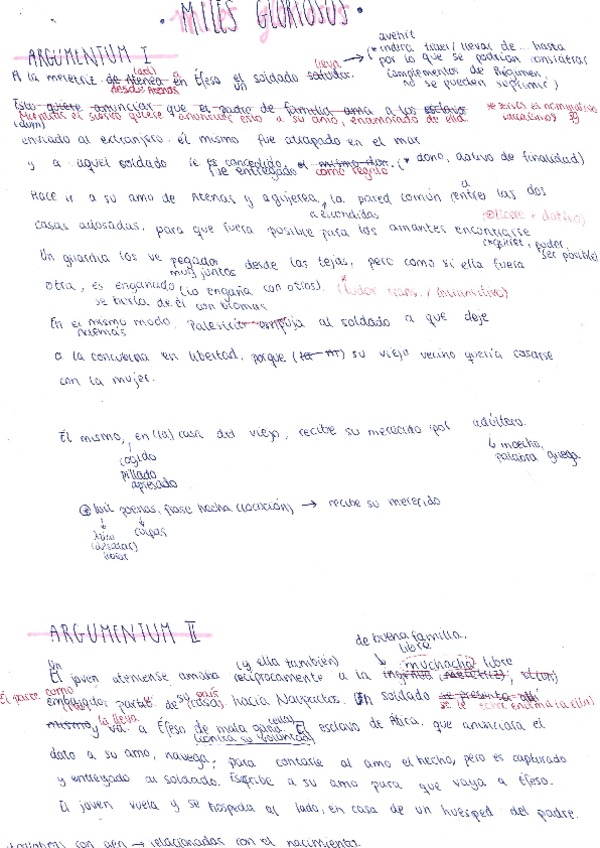 · MILES GLORIOSUS ·
ARGUMENTUM I
avehit
(* indica traer/llevar de... hasta
por lo que se podrían considerar
complementos de Régimen,
no se pueden suprimir)
lleva
A la meretriz de Atenea a Éfeso el soldado
desde Atenas un
Esto quiere anunciar que el padre de familia ama a los esclavo
Mientras el siervo quiere anunciar esto a su amo, enamorado de ella.
(dum)
enviado al extranjero, él mismo fue atrapado en el mar
y a aquel soldado le es concedido, el mismo don. (* dono, dativo de finalidad)
se entregado como regalo
Hace ir a su amo de Atenas y agujerea, la pared común entre las dos
a escondidas
(licere + dativo)
casas adosadas, para que fuera posible para los amantes encontrarse
poder, ser posible
Un guardia los ve pegados desde las tejas, pero como si ella fuera
muy juntos
otra, es engañado (lo engaña con otros). (ludor trans. / intransitivo)
se burla de él con bromas
En el mismo modo, Palestrio empuja al soldado a que deje
además
a la concubina en libertad, porque su viejo vecino quería casarse
con la mujer.
Él mismo, en (la) casa del viejo, recibe su merecido por adúltero.
↳ moecho,
palabra griega
cogido
pillado
apresado
poenas, frase hecha (locución) → recibe su merecido
culpas
ARGUMENTUM II
de buena familia,
libre
Un (y ella también) muchacha libre
El joven ateniense amaba recíprocamente a la ingenua
Él parte como
embajador, partió de su (casa) hacia Naupactus. Un soldado se presenta
país
mismo y va a Éfeso de mala gana. El esclavo de Ática, que anunciara el
la lleva
(contra su voluntad)
dato a su amo, navega, para contarle al amo el hecho, pero es capturado
y entregado al soldado. Escribe a su amo para que vaya a Éfeso.
El joven vuela y se hospeda al lado, en casa de un huésped del padre.
con gen → relacionadas con el nacimiento.